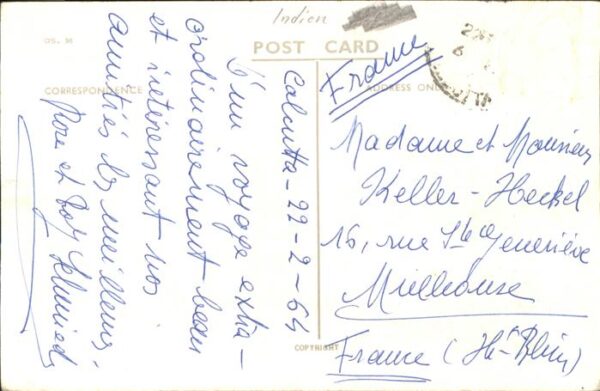 Indien
POST CARD
CORRESPONDENCE
ADDRESS ONLY
Calcutta - 22-2-64
D'un voyage extra-
ordinairement beau
et intéressant nos
amitiés les meilleures.
et Schmied
France
Madame et Monsieur
Keller - Heckel
16, rue Ste Geneviève
Mulhouse
France (Ht-Rhin)
COPYRIGHT